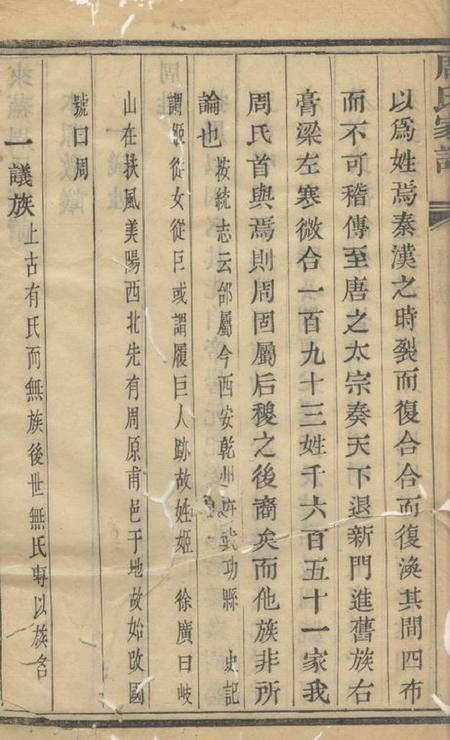 周氏家譜
以爲姓焉秦漢之時裂而復合合而復渙其間四布
而不可稽傳至唐之太宗奏天下退新門進舊族右
膏梁左寒微合一百九十三姓千六百五十一家我
周氏首與焉則周固屬后稷之後裔矣而他族非所
論也 按統志云邰屬今西安乾州府武功縣 史記
謂姬從女從𦣞或謂履巨人跡故姓姬 徐廣曰岐
山在扶風美陽西北先有周原甫邑于地故始改國
號曰周
一議族 上古有氏而無族後世無氏專以族名